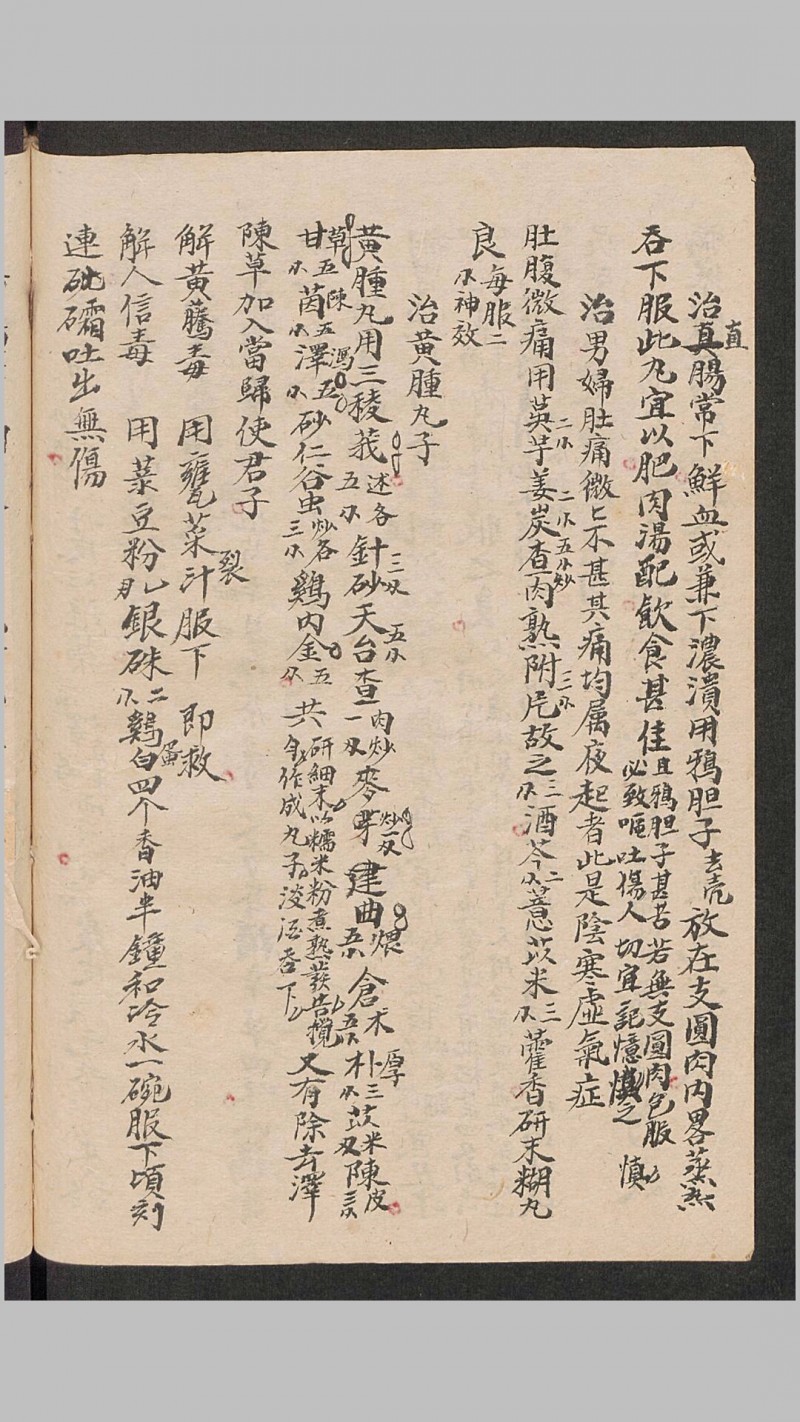 治真直腸常下鮮血或兼下濃潰用鴉胆子去壳放在支圓肉内畧蒸熟
吞下服此丸宜以肥肉湯配飲食甚佳且鴉胆子甚苦若無支圓肉包服必致嘔吐傷人切宜記憶慎之慎
治男婦肚痛微匕不甚其痛均属夜起者此是陰寒虛氣症
肚腹微痛用英芋二小姜炭二小查肉五小炒熟附片三小故之三小酒芩二小薏苡米三小藿香研末糊丸
良每服二小神效
治黄腫丸子
黄腫丸用三稜莪述各五小針砂三双天台查肉炒一双五小麥芽炒双建曲煨五小倉术五小厚朴三小苡米双陳皮三小
甘草五小茵陳五小澤瀉五小砂仁谷虫炒各三小鷄内金五小共研細末以糯米粉煮熟蕟告攪匀作成丸子淡酒吞下又有除去澤
陳草加入當歸使君子
解黃騰毒 用甕菜汁服下 即救
裂
解人信毒 用菉豆粉乩銀硃二小鷄蛋白四个香油半鐘和冷水一碗服下頃刻
連砒礵吐出無傷